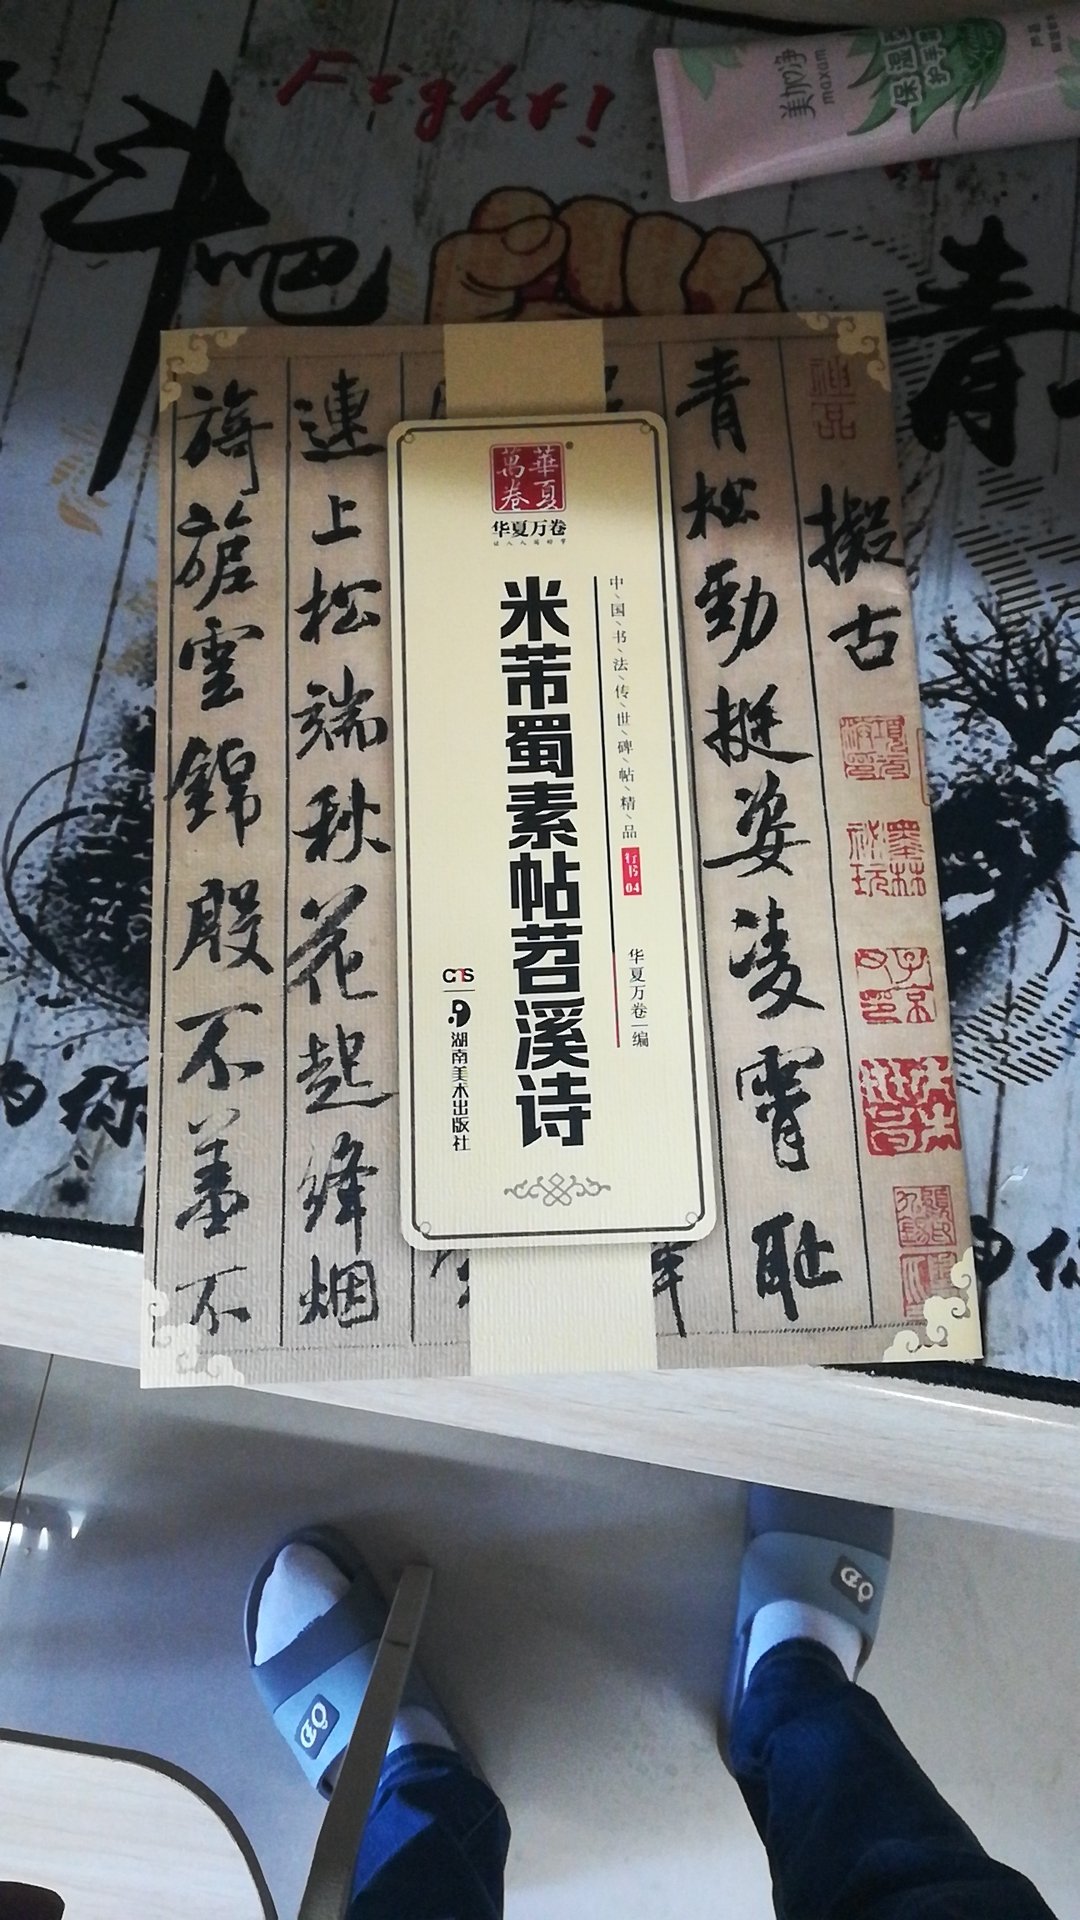 Fight!
斗吧
青
美加净
maxam
保湿
护手霜
神品
擬古
青松勁挺姿凌霄耻
連上松端秋花起絳烟
旖旎雲錦殷不羞不
華夏萬卷
华夏万卷
让人人写好字
中国书法传世碑帖精品
行书04
米芾蜀素帖苕溪诗
华夏万卷 编
CTS
湖南美术出版社
的你